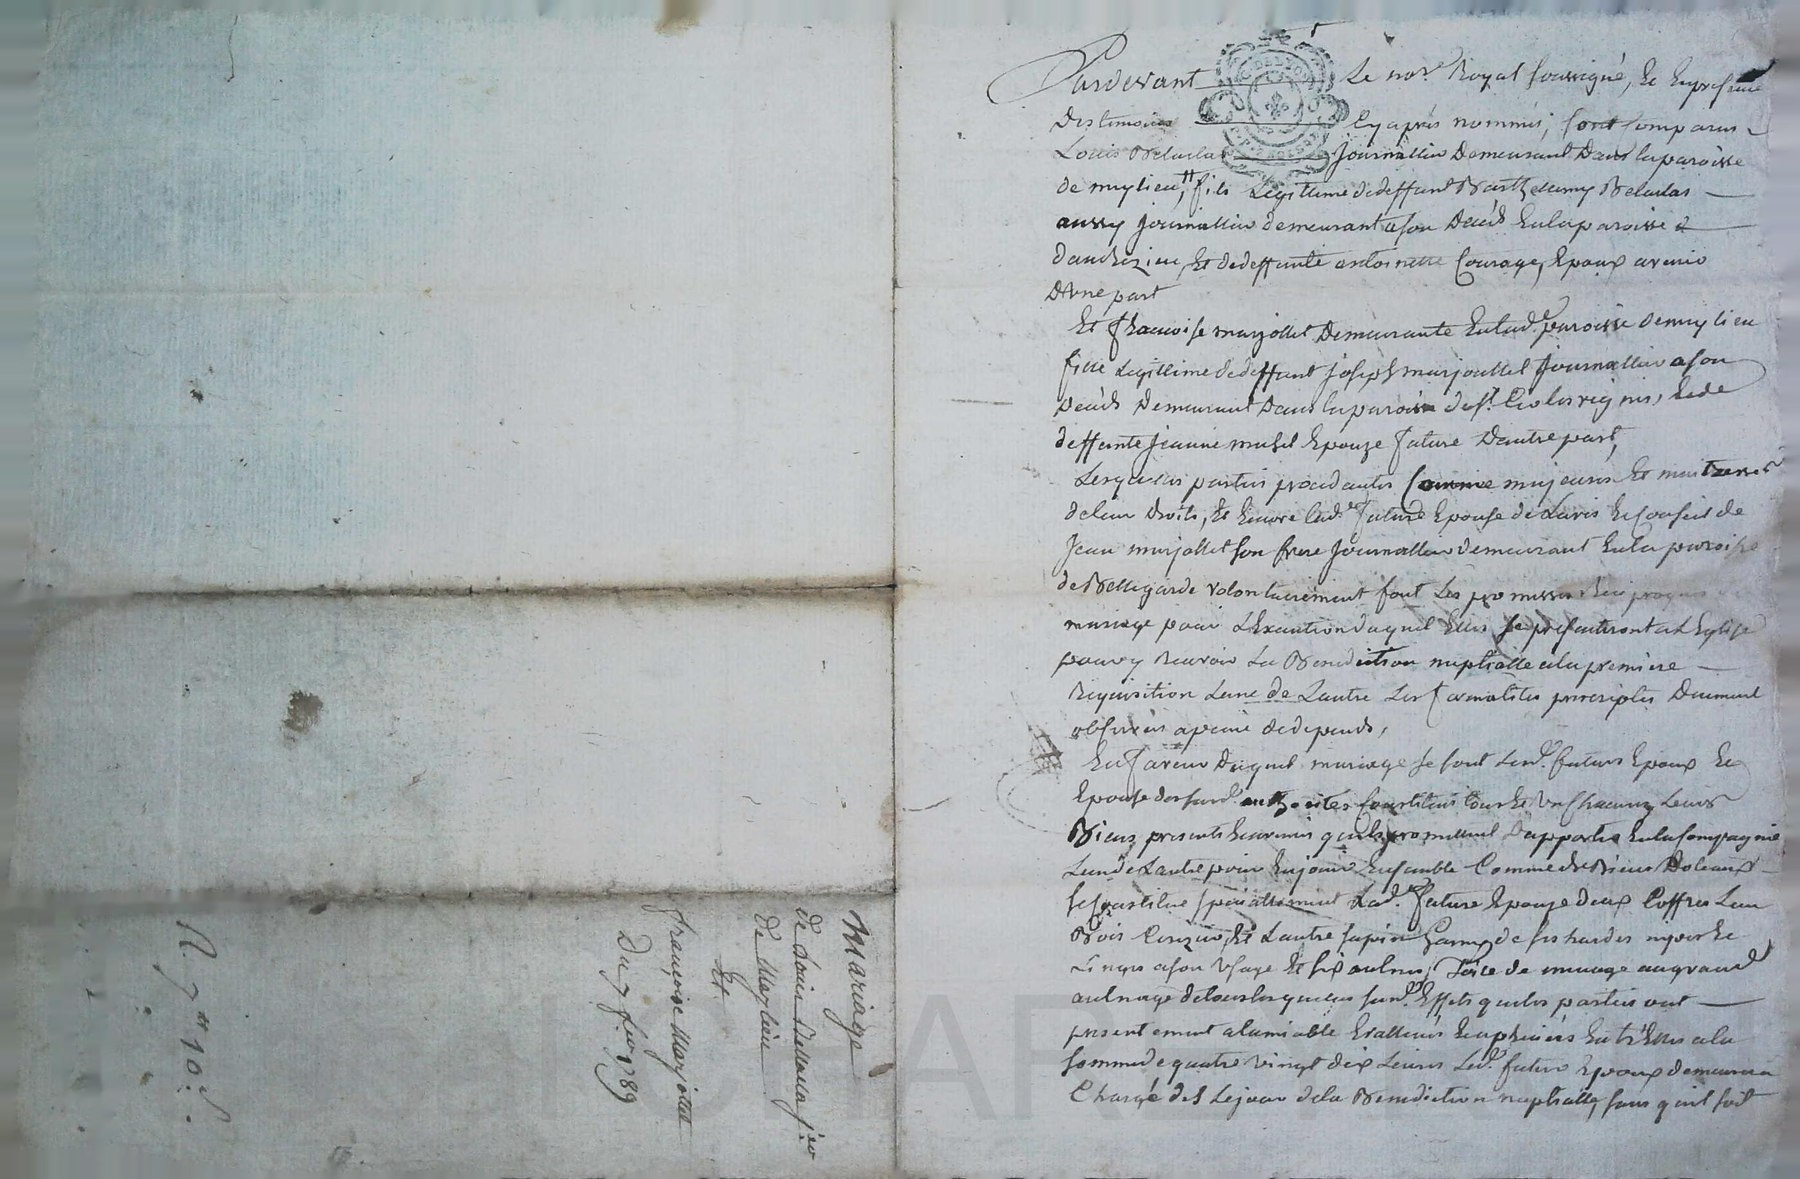 Pardevant Le nore Royal soussigné, Et En presence
Des temoins Cy après nommés, sont Comparus
Louis Delaclas journallier Demeurant Dans la paroisse
de mylieu, fils Legitime de deffunt Barthelemy Delaclas
aussy journallier demeurant a son Decés En la paroisse
daveizieu, Et de deffunte antoinette Courage, Epoux avenir
D'une part
Et fransoise marjollet Demeurante En lade paroisse de mylieu
fille Legitime de deffunt joseph marjollet journallier a son
Decés Demeurant Dans la paroisse de st. , Et de
deffunte jeanne Epouze future D'autre part,
Lesquelles parties procedantes Comme majeures Et maitresses
de leur Droits, Et Encore lade future Epouse de L'avis Et Conseil de
jean marjollet son frere journallier demeurant En la paroisse
de Bellegarde volontairement font Les promesses Reciproques de
mariage pour L'Execution duquel Elles se presenteront a L'Eglise
pour y Recevoir La Benediction nuptialle a la premiere
Requisition L'une de L'autre Les formalités prescriptes Duement
observées a peine de depends,
En faveur Duquel mariage se sont Lesds. futurs Epoux Et
Epouse desd. authorités Constitués tous Et Un chacuns Leurs
Biens presents Et avenir qu'ils promettent D'apporter En la Compagnie
L'un de L'autre pour En jouir Ensemble Comme de Biens Dotaux
se Constitue specialement Lade. future Epouze deux Coffres L'un
Bois Cerizier, Et L'autre sapin Garny de ses hardes nipes Et
Linges a son Usage Et six aulnes Toile de menage au grand
aulnage de tous lesquels susds Effets que les parties ont
presentement a l'amiable Evallués Et apreciés Entr'Elles a la
somme de quatre vingt dix Livres Led. futur Epoux demeurera
Chargé dés Le jour de la Benediction nuptialle, sans qu'il soit
Mariage
de Louis dellacla jer
de Maylieu
Et
françoise Marjollet
Du 7 fer 1789
R. 7tt 10s.